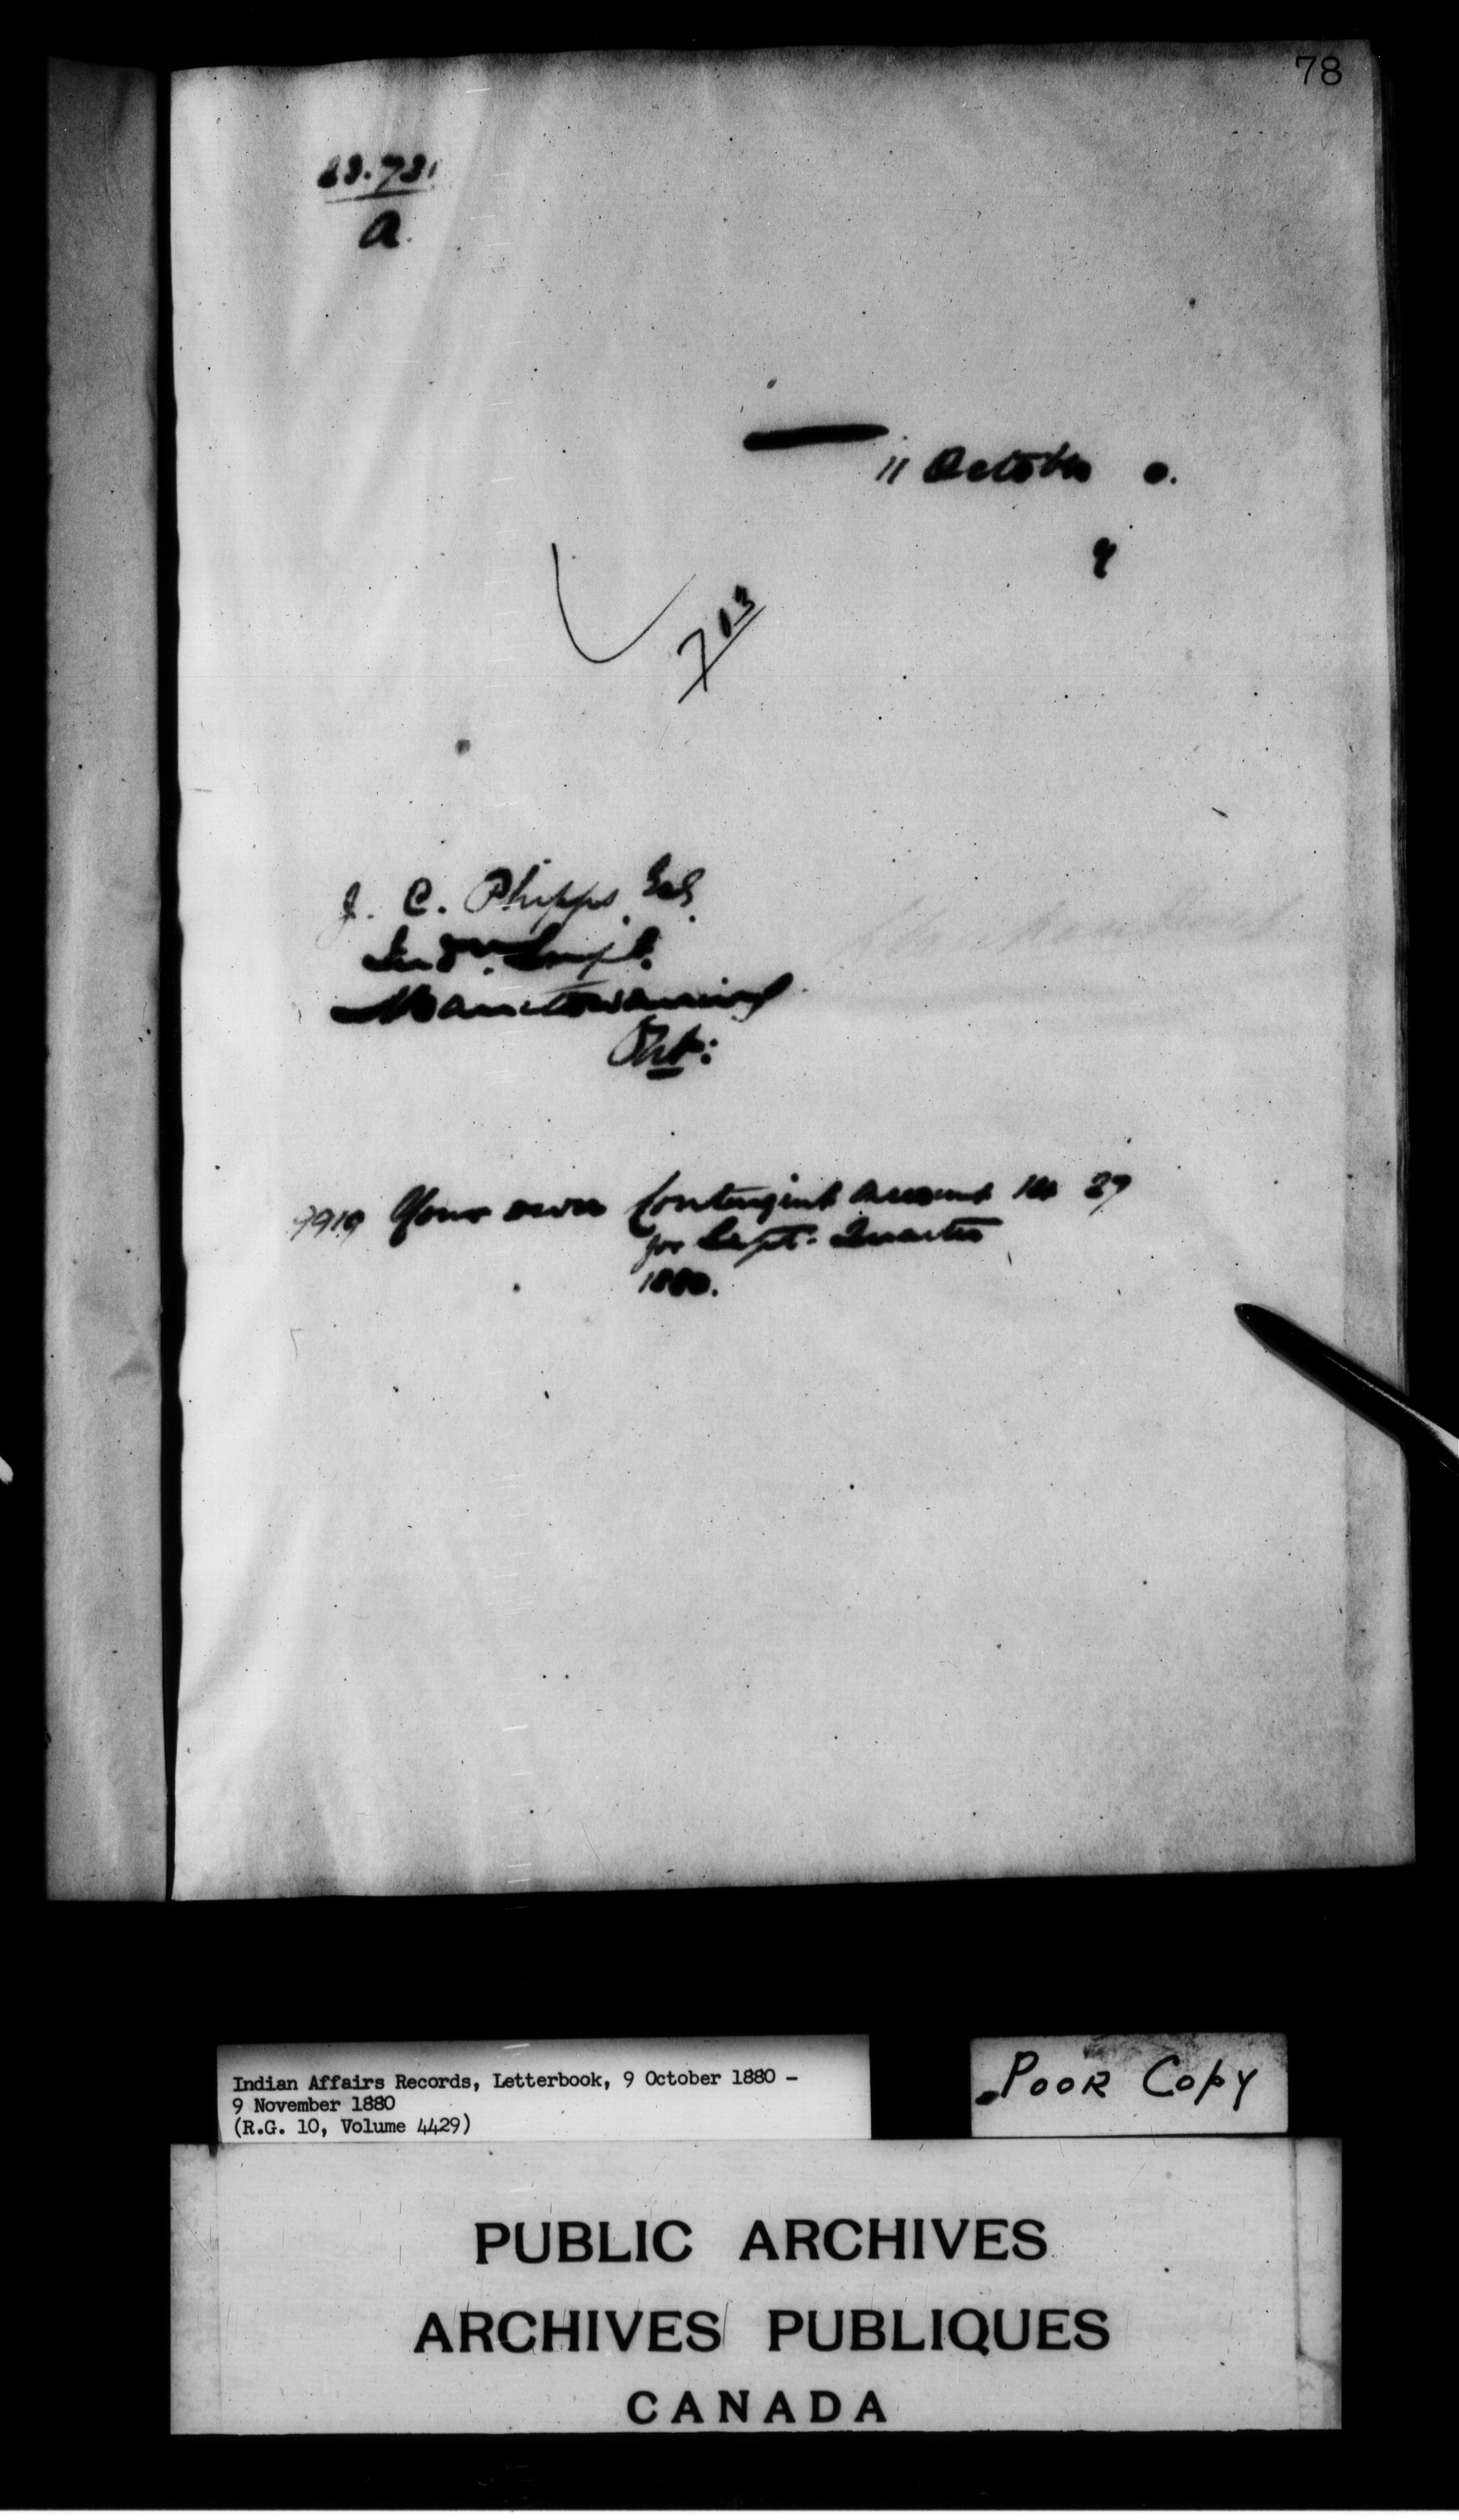 78
23.731
a.
11 October 0.
4
703
J. C. Phipps Esq.
Indn. Supt.
Manitowaning
Ont:
9919 Your own Contingent Account No 27
for Sept. Quarter
1880.
Indian Affairs Records, Letterbook, 9 October 1880 -
9 November 1880
(R.G. 10, Volume 4429)
Poor Copy
PUBLIC ARCHIVES
ARCHIVES PUBLIQUES
CANADA